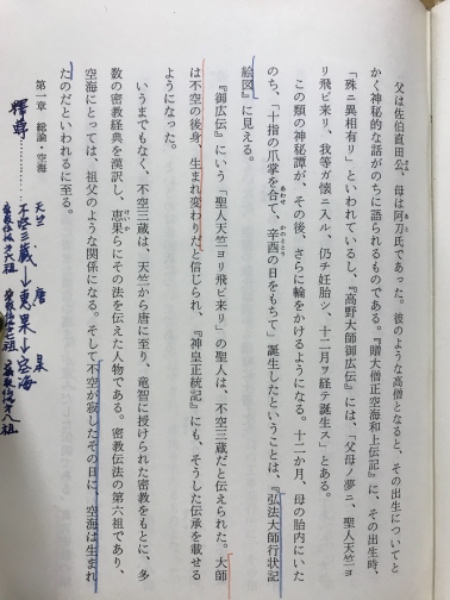 父は佐伯直田公、母は阿刀氏であった。彼のような高僧となると、その出生についてと
かく神秘的な話がのちに語られるものである。『贈大僧正空海和上伝記』に、その出生時、
「殊ニ異相有リ」といわれているし、『高野大師御広伝』には、「父母ノ夢ニ、聖人天竺ヨ
リ飛ビ来リ、我等ガ懐ニ入ル、仍チ妊胎シ、十二月ヲ経テ誕生ス」とある。
この類の神秘譚が、その後、さらに輪をかけるようになる。十二か月、母の胎内にいた
のち、「十指の爪掌を合て、辛酉の日をもちて」誕生したということは、『弘法大師行状記
絵図』に見える。
『御広伝』にいう「聖人天竺ヨリ飛ビ来リ」の聖人は、不空三蔵だと伝えられた。大師
は不空の後身、生まれ変わりだと信じられ、『神皇正統記』にも、そうした伝承を載せる
ようになった。
いうまでもなく、不空三蔵は、天竺から唐に至り、竜智に授けられた密教をもとに、多
数の密教経典を漢訳し、恵果らにその法を伝えた人物である。密教伝法の第六祖であり、
空海にとっては、祖父のような関係になる。そして不空が寂したその日に、空海は生まれ
たのだといわれるに至る。
第一章 総論・空海
天竺 唐
不空三蔵→恵果→空海